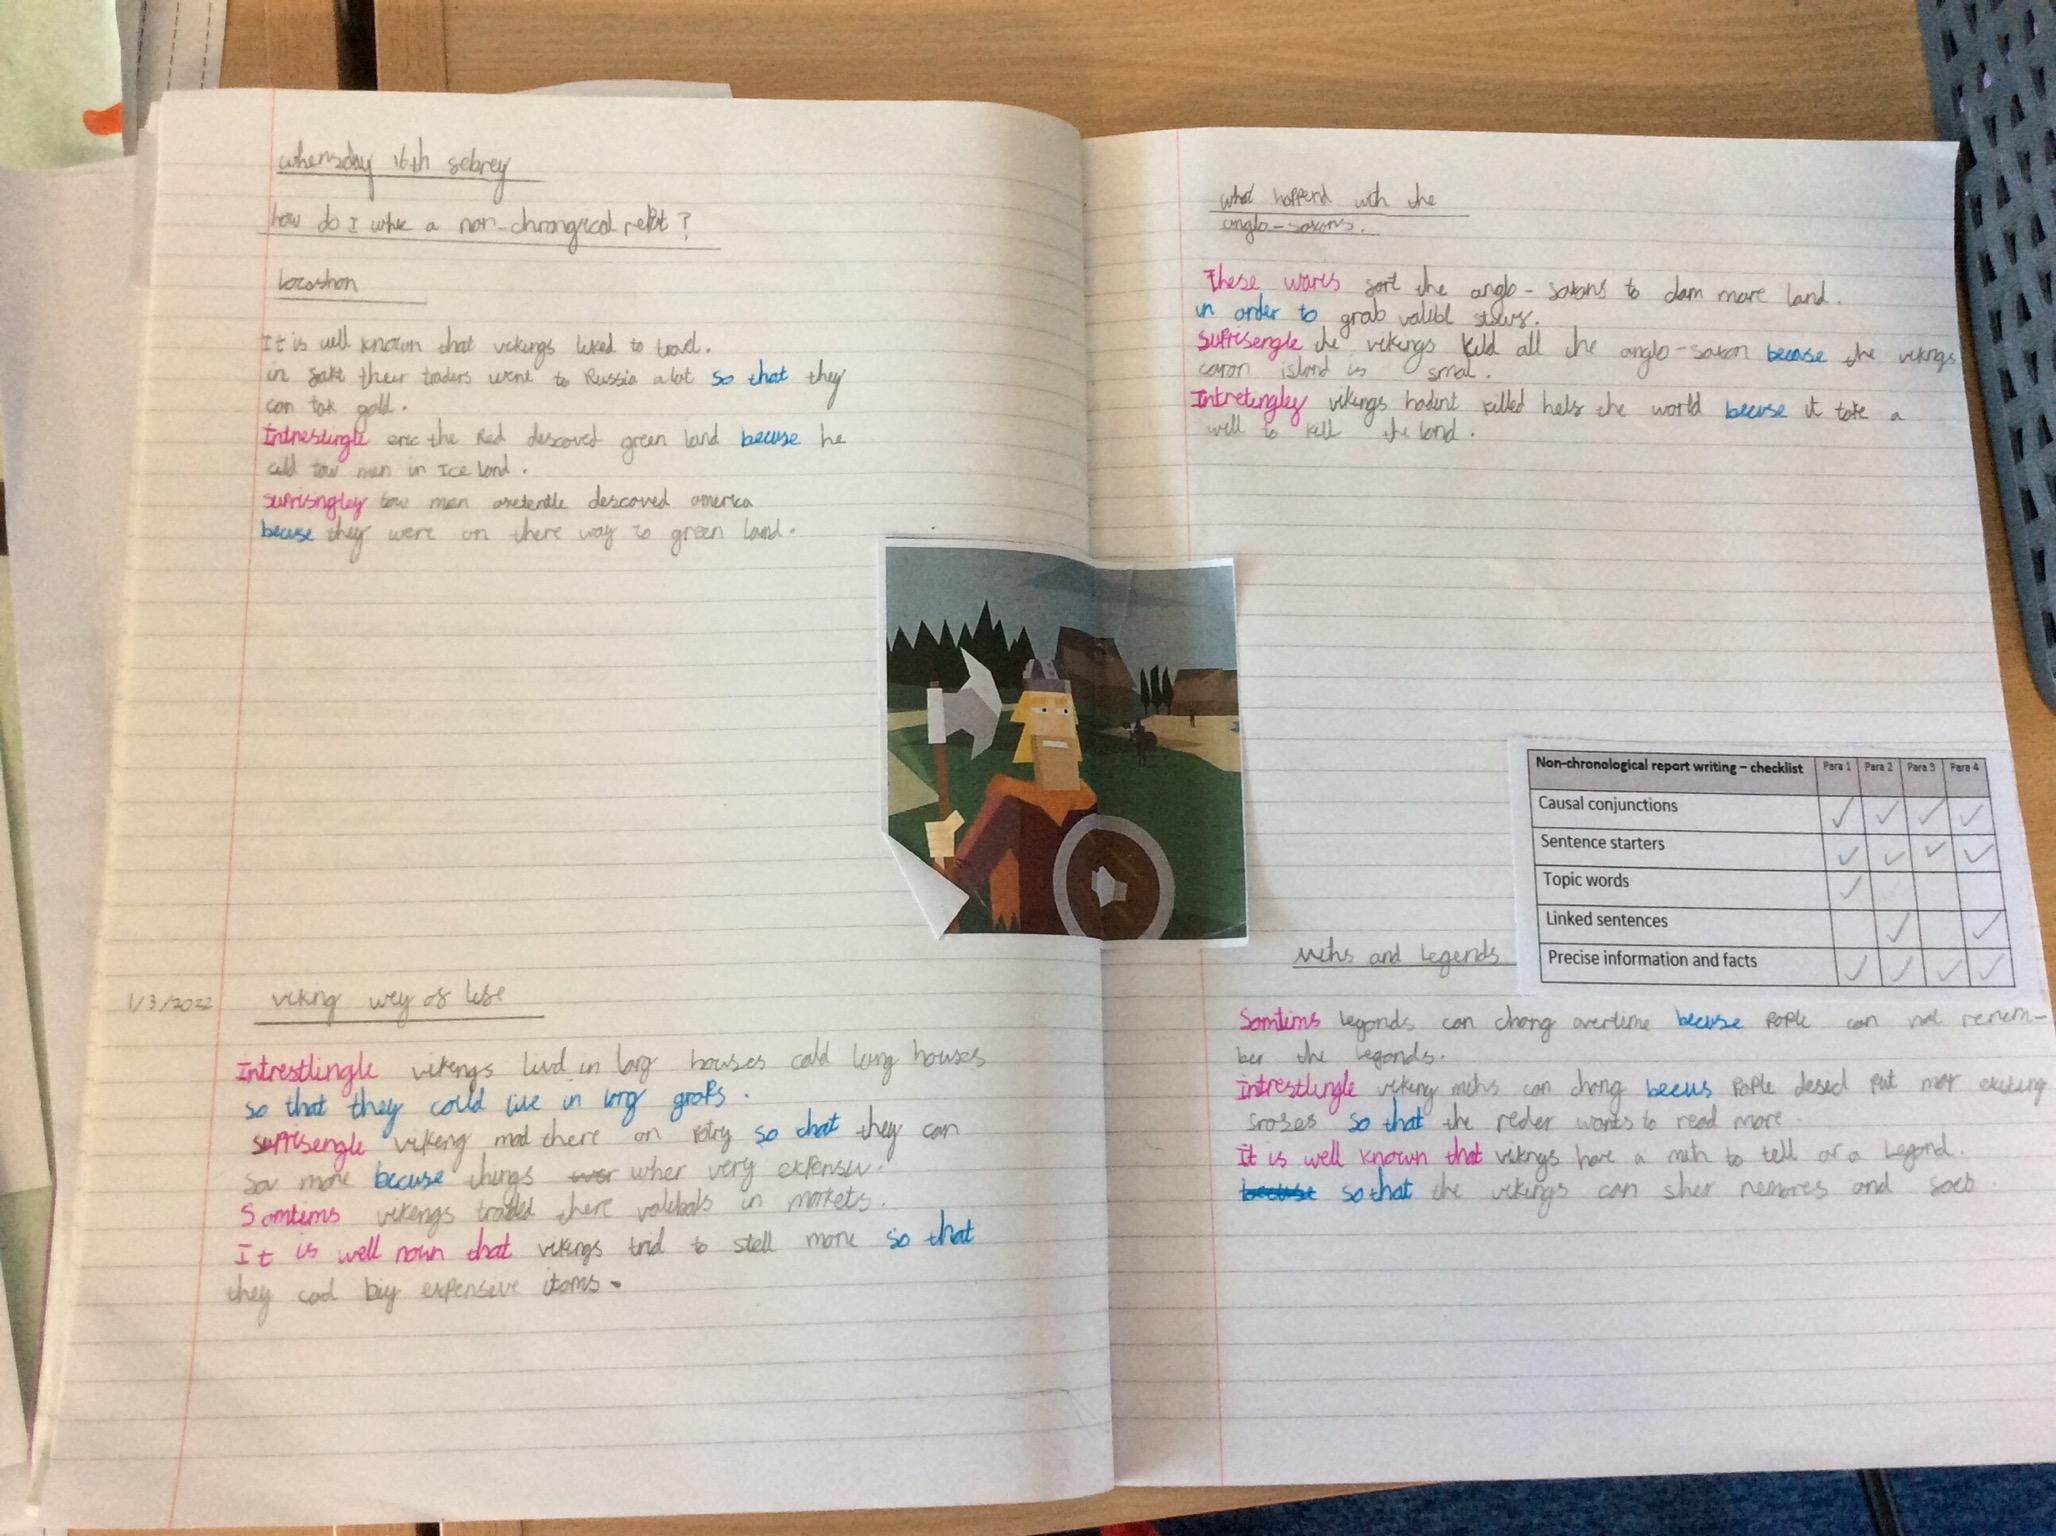 whensday 16th sebrey
how do I write a non-chrongical report?
locashon
It is well known that vikings liked to travel.
in fakt their traders went to Russia a lot so that they
can tak gold.
Intrestingle eric the Red descoved green land becuse he
cild tow men in Ice land.
suprisingley tow men axedentle descoved america
becuse they were on there way to green land.
1/3/2022
viking wey of life
Intrestlingle vikings livd in larg houses cald long houses
so that they could live in larg grops.
suprisengle vikeng mad there on potry so that they can
sav more becuse things wher very expensiv.
Somtims vikengs traded there valibals in markets.
It is well nown that vikings trid to stell more so that
they cod biy expensive items.
what happend with the
anglo-saxons.
These wares fort the anglo-saxons to clam more land.
in order to grab valibl stufs.
suprisengle the vikings kild all the anglo-saxon becase the vikings
island is smal.
Intretingley vikings hadint killed helf the world becuse it take a
will to kill the land.
Non-chronological report writing – checklist Para 1 Para 2 Para 3 Para 4
Causal conjunctions ✓ ✓ ✓ ✓
Sentence starters ✓ ✓ ✓ ✓
Topic words ✓
Linked sentences ✓ ✓
Precise information and facts ✓ ✓ ✓ ✓
miths and legends
Somtims legonds can chang overtime becuse pople can not remem-
ber the legonds.
intrestlingle viking miths can chang becus pople desed put mor exciting
so that the reder wants to read more.
It is well known that vikings have a mith to tell or a Legond.
becuse so that the vikings can sher memores and